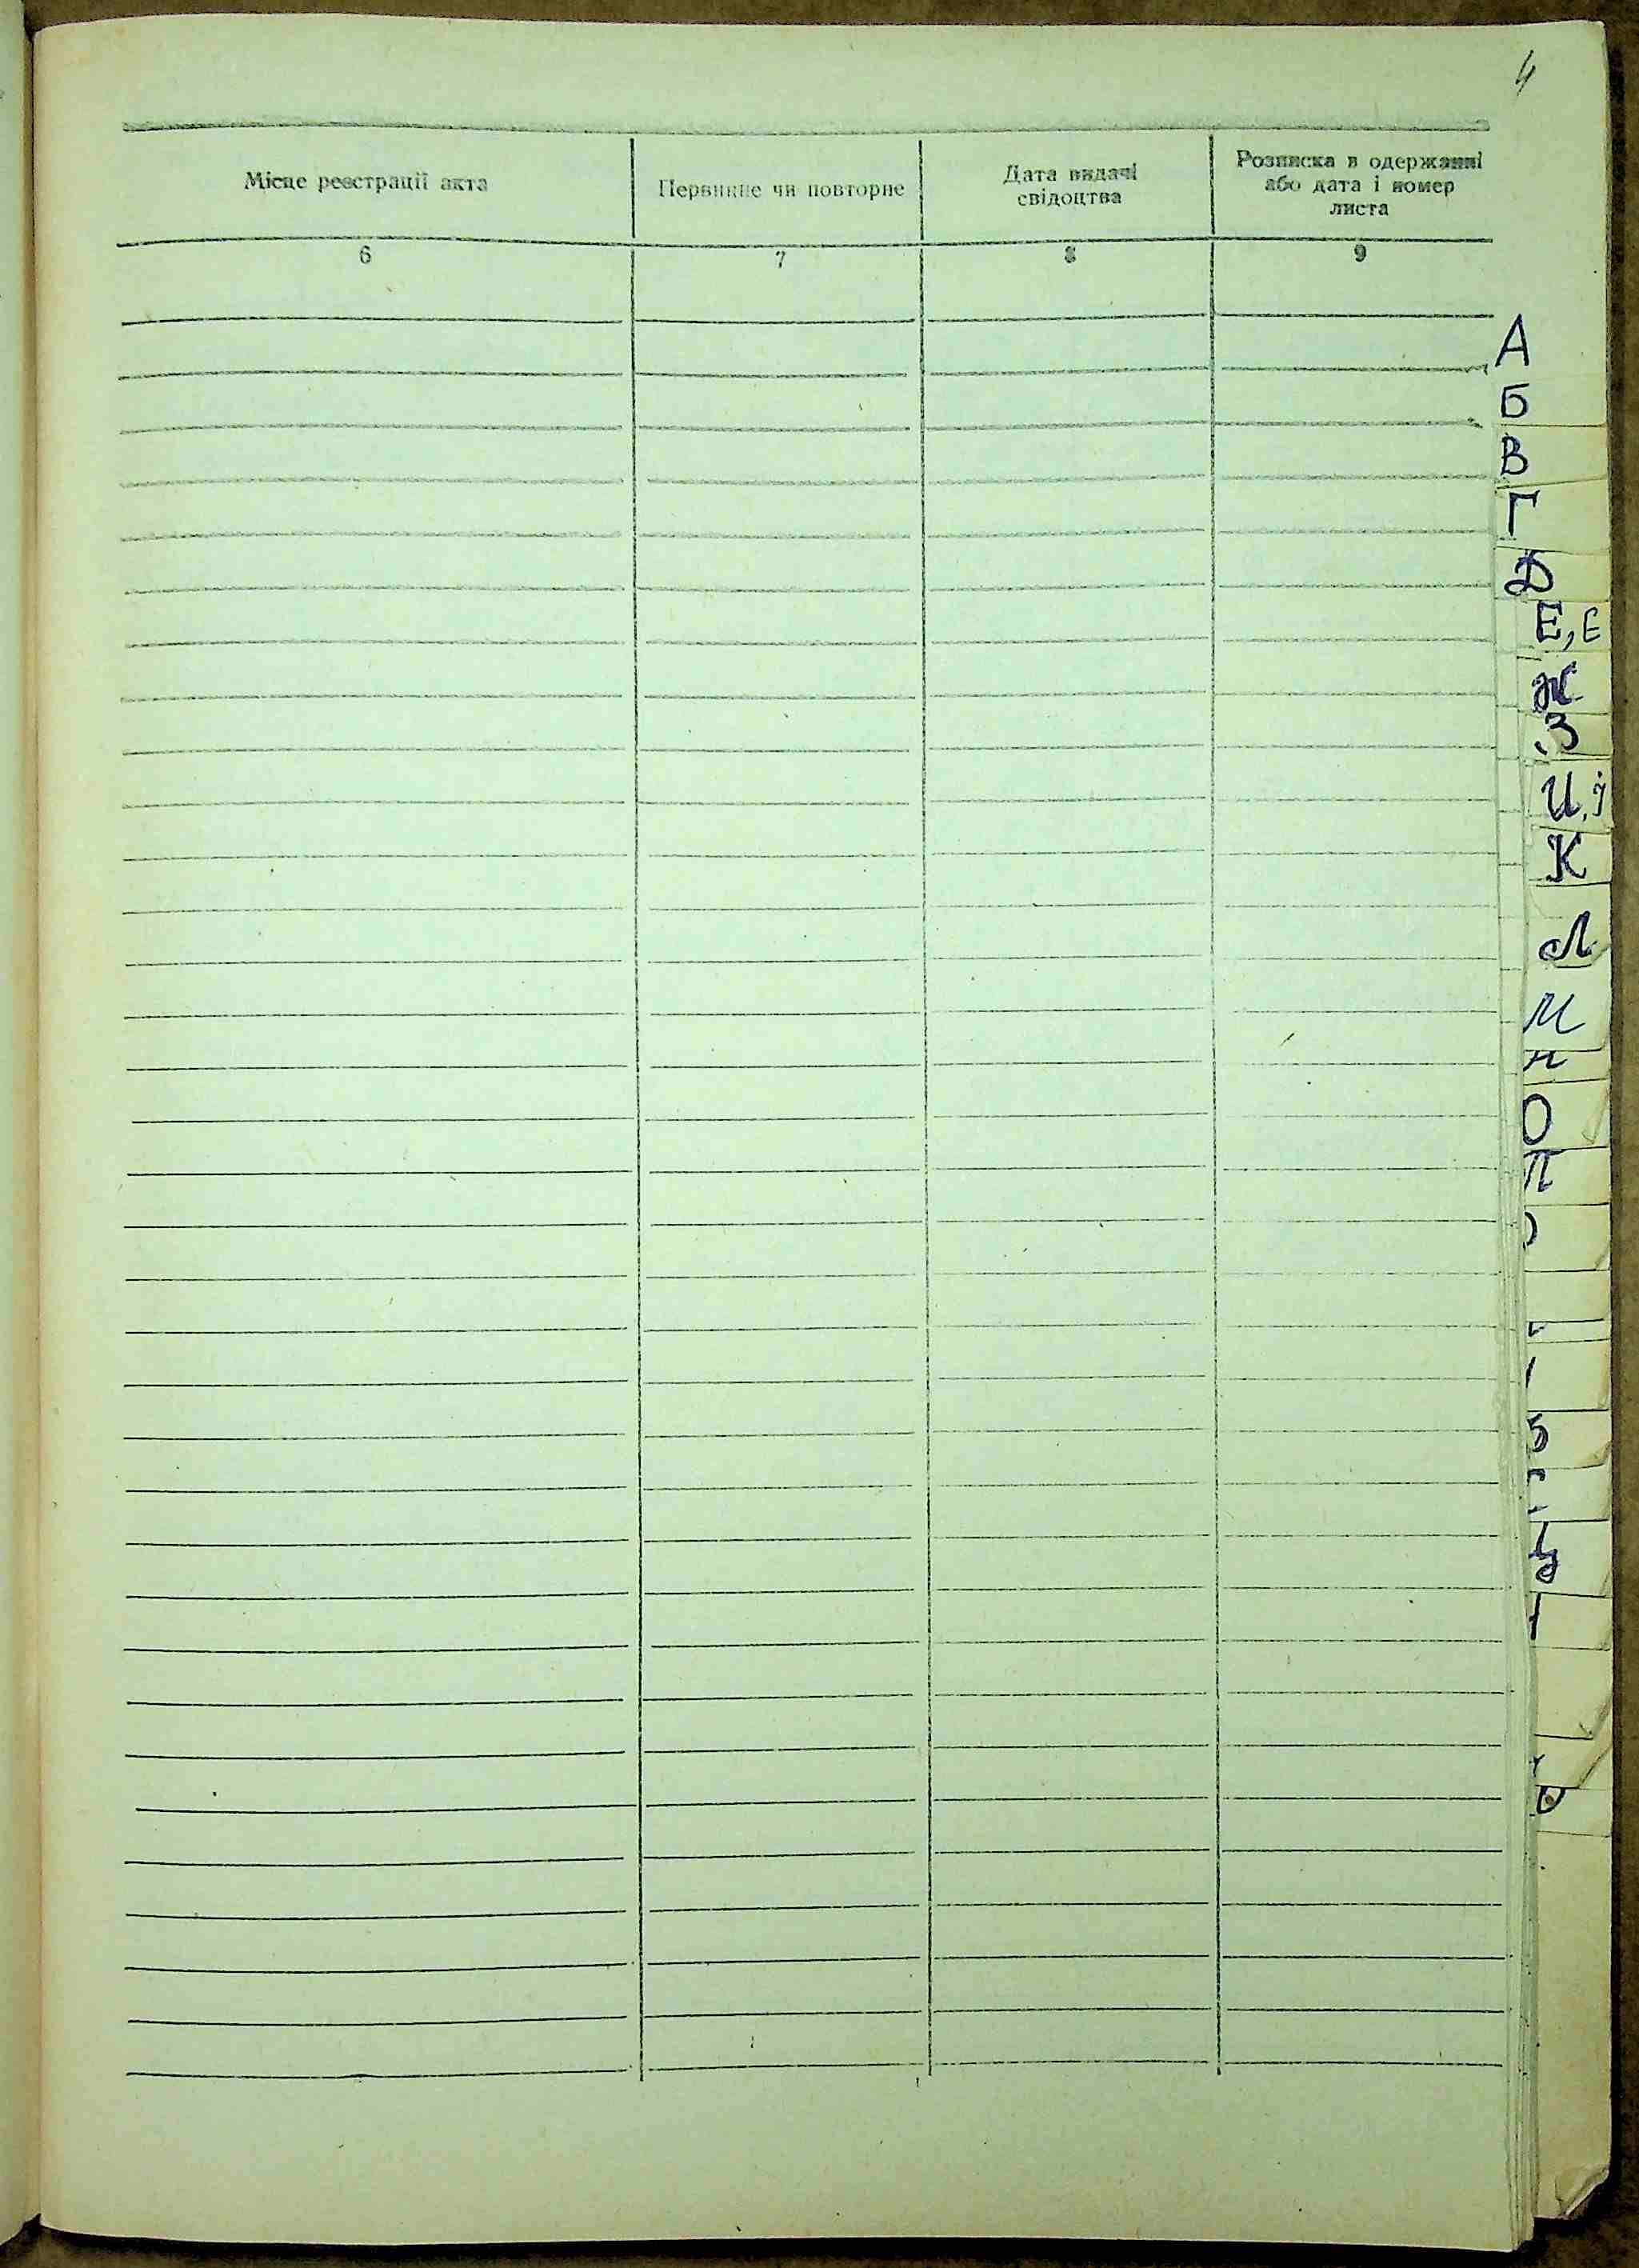 4
Місце реєстрації акта
Первинне чи повторне
Дата видачі
свідоцтва
Розписка в одержанні
або дата і номер
листа
6
7
8
9
А
Б
В
Г
Д
Е, Є
Ж
З
И, І
К
Л
М
Н
О
П